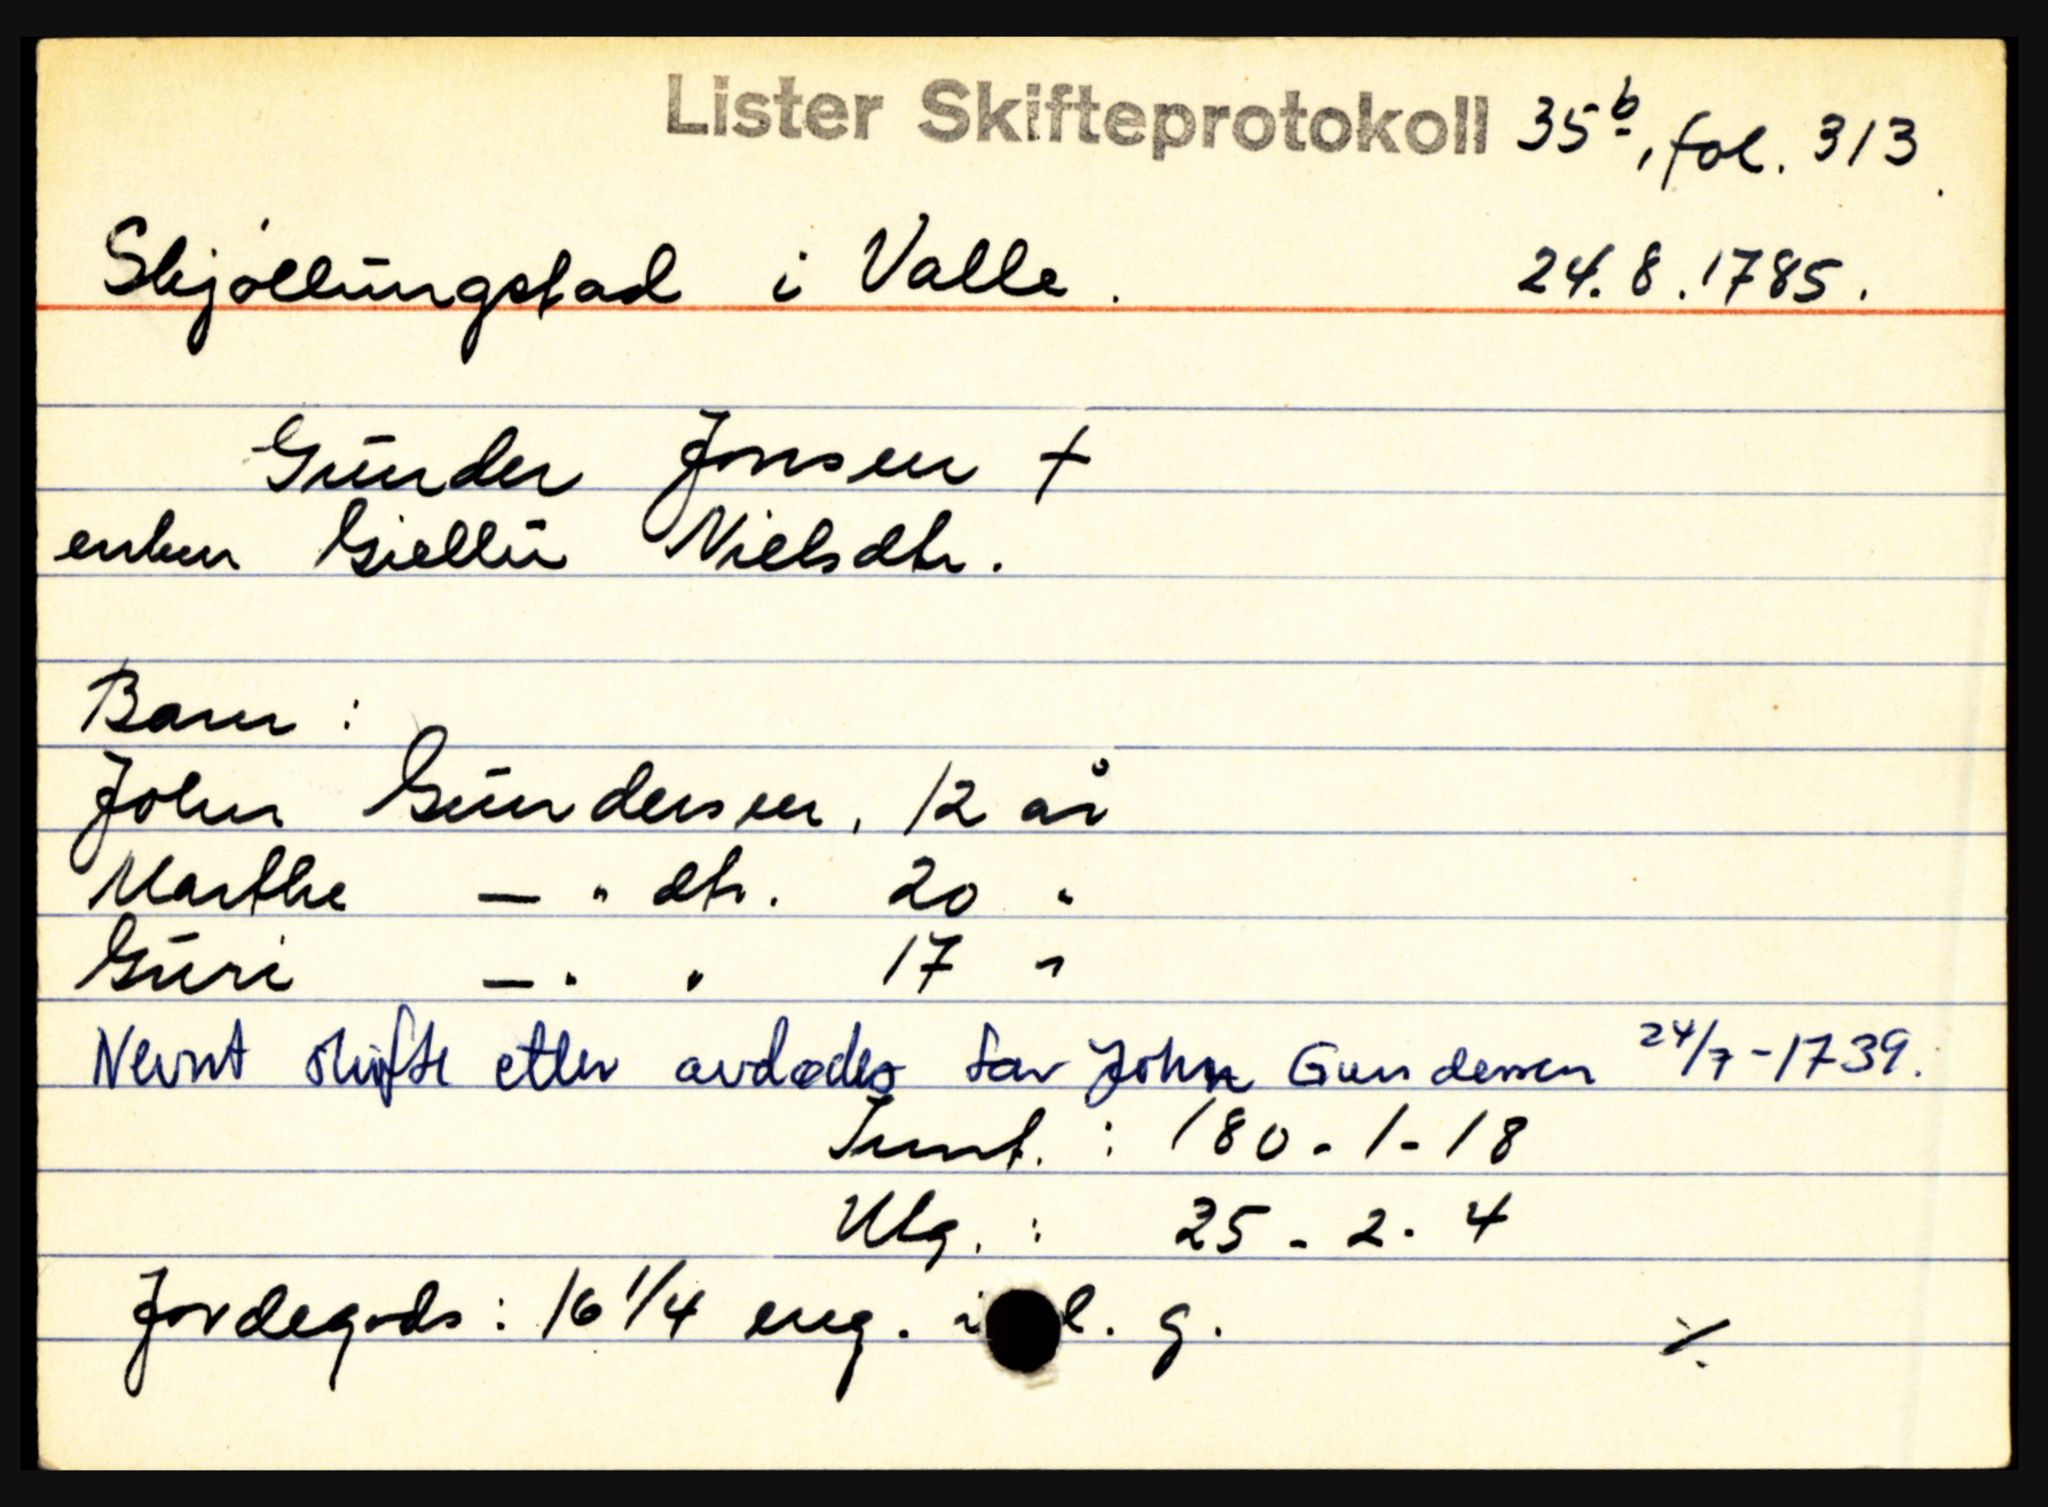 Lister Skifteprotokoll 35b, fol. 313.
Skjøllingstad i Valle. 24.8.1785.
Gunder Jonsen +
enken Giellu Nielsdtr.
Barn:
John Gundersen, 12 år
Marthe — " dtr. 20 "
Guri — " " 17 "
Nevnt skifte etter avdødes far John Gundersen 24/7-1739.
Innt.: 180-1-18
Utg.: 25-2-4
Jordegods: 16 1/4 eng. i g.
./.